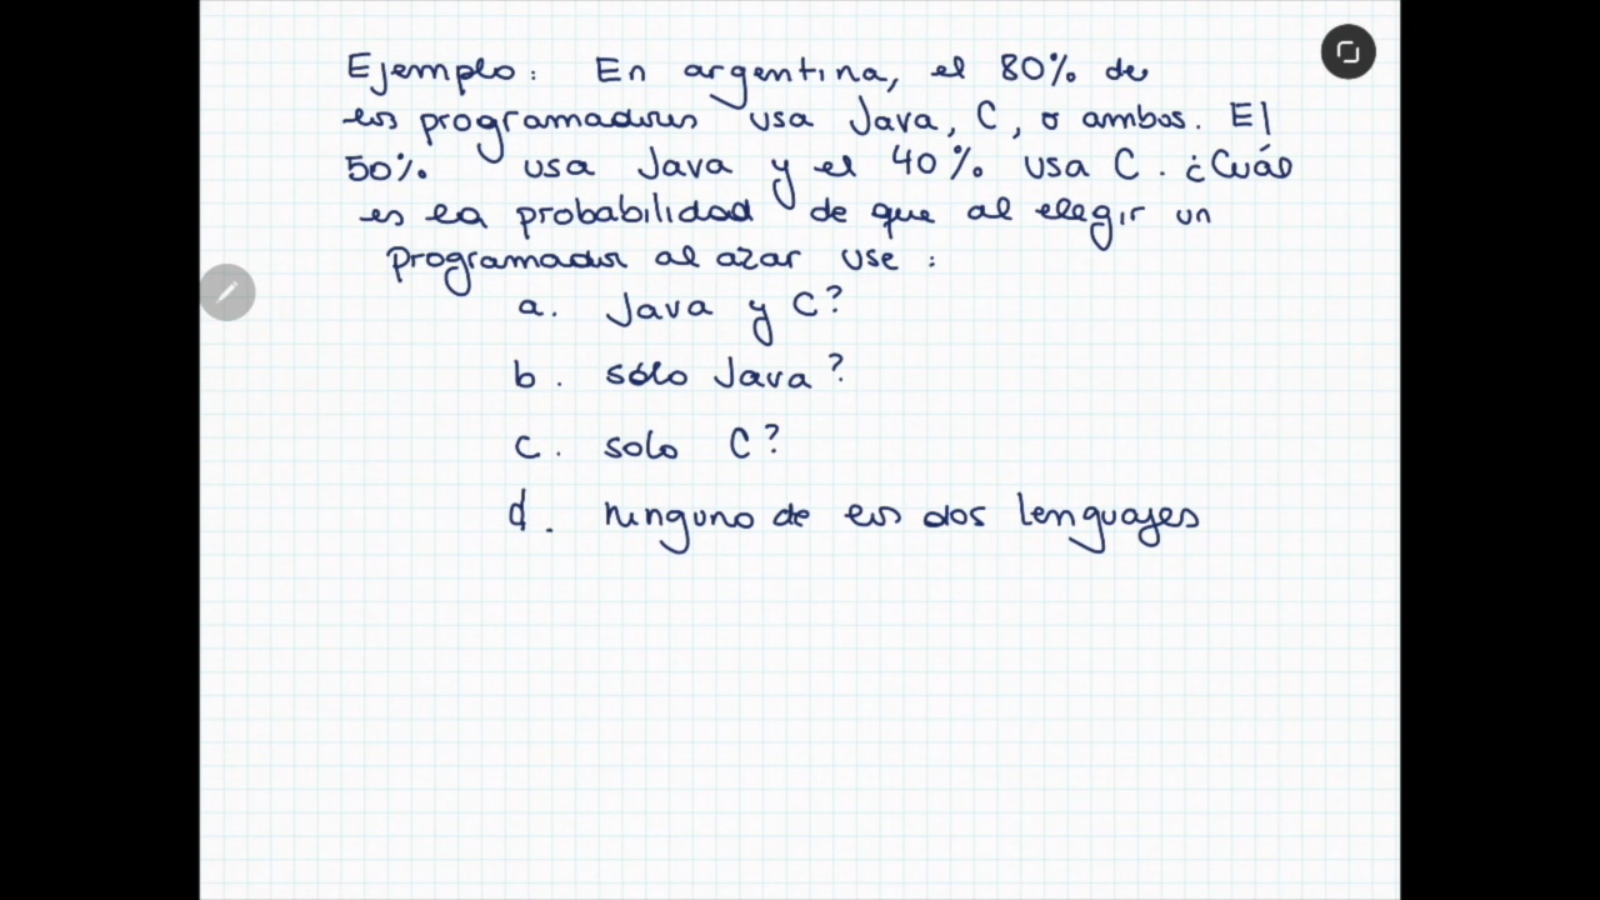 Ejemplo: En argentina, el 80% de
los programadores usa Java, C, o ambos. El
50% usa Java y el 40% usa C. ¿Cuál
es la probabilidad de que al elegir un
programador al azar use:
a. Java y C?
b. sólo Java?
c. solo C?
d. ninguno de los dos lenguajes